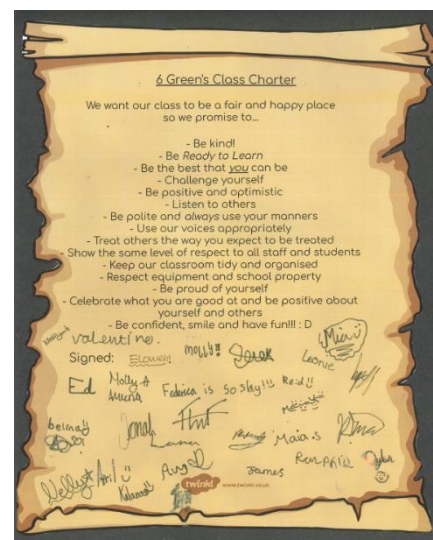 6 Green's Class Charter
We want our class to be a fair and happy place
so we promise to...
- Be kind!
- Be Ready to Learn
- Be the best that you can be
- Challenge yourself
- Be positive and optimistic
- Listen to others
- Be polite and always use your manners
- Use our voices appropriately
- Treat others the way you expect to be treated
- Show the same level of respect to all staff and students
- Keep our classroom tidy and organised
- Respect equipment and school property
- Be proud of yourself
- Celebrate what you are good at and be positive about
yourself and others
- Be confident, smile and have fun!!! : D
valentine.
Signed: Elowen! molly!! Derek Leonie Miu
Ed Molly A Federica is so slay!!! Reid
belma Jonah Maia.s
Nelly April Angel James
twinkl www.twinkl.co.uk